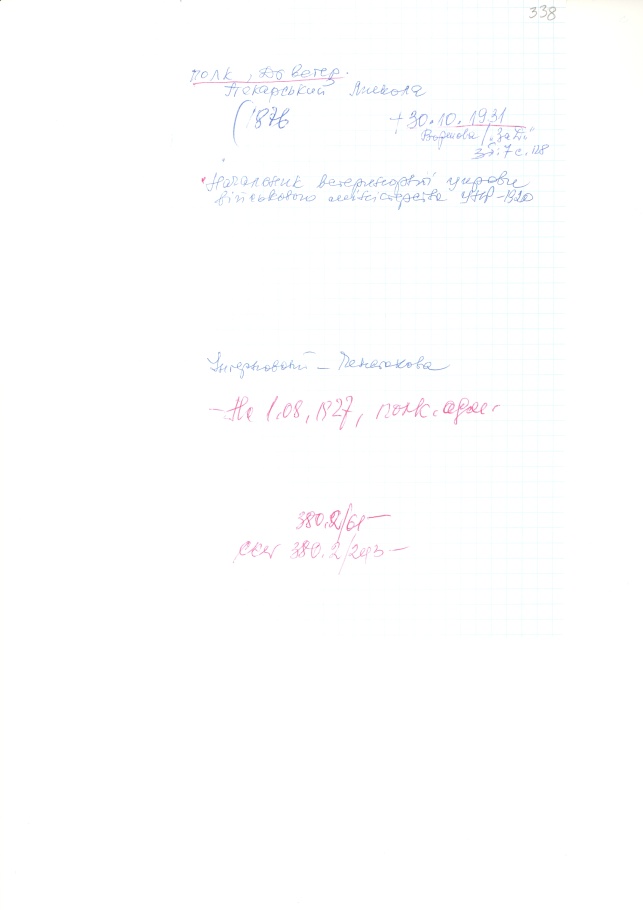 338
полк, Др ветер.
Пекарський Микола
(1876 + 30.10.1931
Варшава / "За Д."
зб. 7 с. 128
Начальник ветеринарної управи
військового міністерства УНР - 1920
Інтернований -
- На 1.08, 1927, полк. адм.
380.2/61 -
380.2/243 -